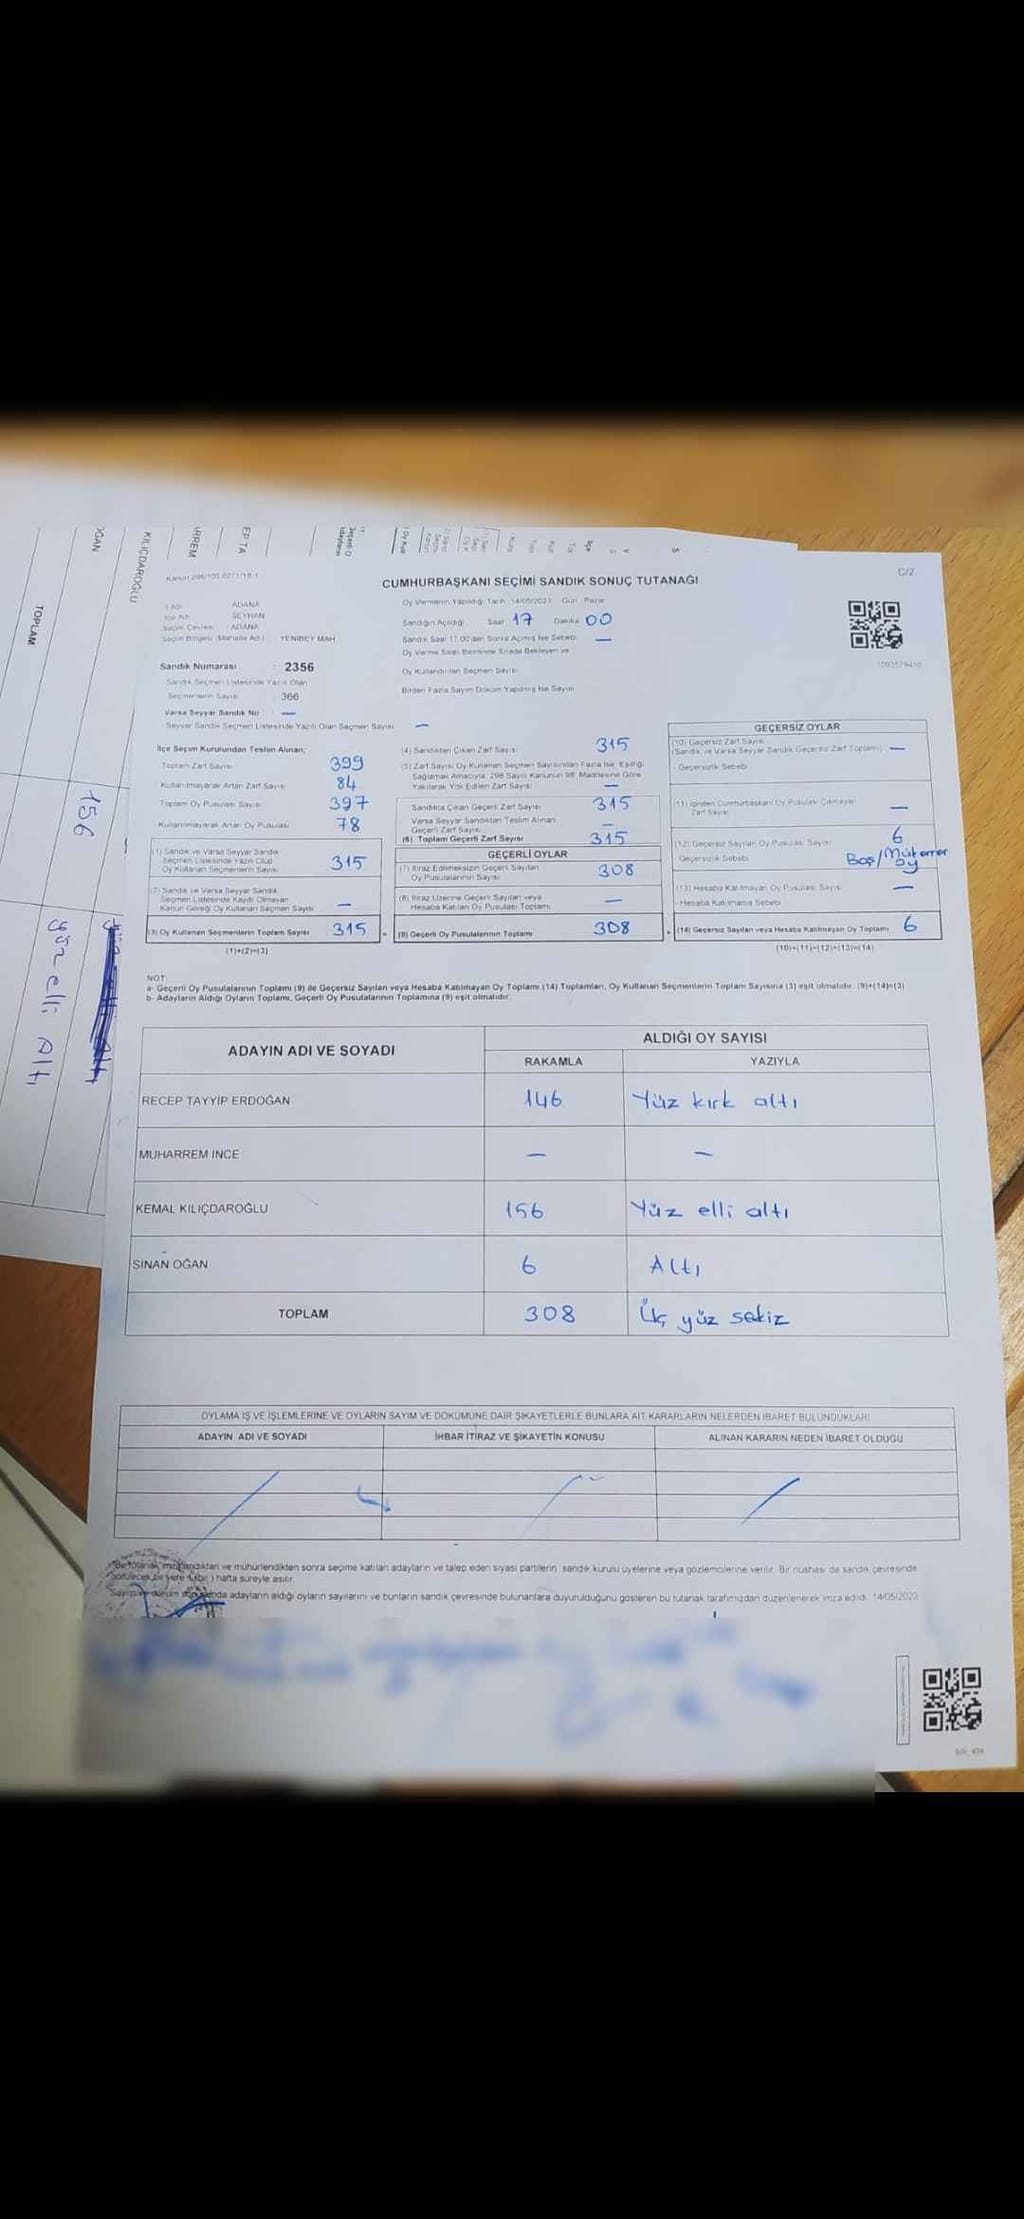 Kanun 298/105 6271/18-1
CUMHURBAŞKANI SEÇİMİ SANDIK SONUÇ TUTANAĞI
C/2
İl Adı ADANA
İlçe Adı SEYHAN
Seçim Çevresi : ADANA
Seçim Bölgesi (Mahalle Ad.) YENİBEY MAH
Sandık Numarası : 2356
Sandık Seçmen Listesinde Yazılı Olan
Seçmenlerin Sayısı : 366
Varsa Seyyar Sandık No : —
Seyyar Sandık Seçmen Listesinde Yazılı Olan Seçmen Sayısı —
Oy Vermenin Yapıldığı Tarih : 14/05/2023 Gün : Pazar
Sandığın Açıldığı Saat 17 Dakika 00
Sandık Saat 17:00'den Sonra Açılmış İse Sebebi —
Oy Verme Saati Bitiminde Sırada Bekleyen ve
Oy Kullandırılan Seçmen Sayısı
Birden Fazla Sayım Döküm Yapılmış İse Sayısı
İlçe Seçim Kurulundan Teslim Alınan;
Toplam Zarf Sayısı 399
Kullanılmayarak Artan Zarf Sayısı 84
Toplam Oy Pusulası Sayısı 397
Kullanılmayarak Artan Oy Pusulası 78
(1) Sandık ve Varsa Seyyar Sandık
Seçmen Listesinde Yazılı Olup
Oy Kullanan Seçmenlerin Sayısı 315
(2) Sandık ve Varsa Seyyar Sandık
Seçmen Listesinde Kayıtlı Olmayan
Kanun Gereği Oy Kullanan Seçmen Sayısı —
(3) Oy Kullanan Seçmenlerin Toplam Sayısı 315
(1)+(2)=(3)
(4) Sandıktan Çıkan Zarf Sayısı 315
(5) Zarf Sayısı Oy Kullanan Seçmen Sayısından Fazla İse, Eşitliği
Sağlamak Amacıyla, 298 Sayılı Kanunun 98. Maddesine Göre
Yakılarak Yok Edilen Zarf Sayısı —
Sandıkta Çıkan Geçerli Zarf Sayısı 315
Varsa Seyyar Sandıktan Teslim Alınan
Geçerli Zarf Sayısı —
(6) Toplam Geçerli Zarf Sayısı 315
GEÇERLİ OYLAR
(7) İtiraz Edilmeksizin Geçerli Sayılan
Oy Pusulalarının Sayısı 308
(8) İtiraz Üzerine Geçerli Sayılan veya
Hesaba Katılan Oy Pusulası Toplamı —
(9) Geçerli Oy Pusulalarının Toplamı 308
GEÇERSİZ OYLAR
(10) Geçersiz Zarf Sayısı
(Sandık ve Varsa Seyyar Sandık Geçersiz Zarf Toplamı) —
- Geçersizlik Sebebi
(11) İçinden Cumhurbaşkanı Oy Pusulası Çıkmayan
Zarf Sayısı —
(12) Geçersiz Sayılan Oy Pusulası Sayısı 6
Geçersizlik Sebebi Boş/Mükerrer oy
(13) Hesaba Katılmayan Oy Pusulası Sayısı —
- Hesaba Katılmama Sebebi
(14) Geçersiz Sayılan veya Hesaba Katılmayan Oy Toplamı 6
(10)+(11)+(12)+(13)=(14)
NOT:
a- Geçerli Oy Pusulalarının Toplamı (9) ile Geçersiz Sayılan veya Hesaba Katılmayan Oy Toplamı (14) Toplamları, Oy Kullanan Seçmenlerin Toplam Sayısına (3) eşit olmalıdır. (9)+(14)=(3)
b- Adayların Aldığı Oyların Toplamı, Geçerli Oy Pusulalarının Toplamına (9) eşit olmalıdır.
ADAYIN ADI VE SOYADI
ALDIĞI OY SAYISI
RAKAMLA YAZIYLA
RECEP TAYYİP ERDOĞAN 146 Yüz kırk altı
MUHARREM İNCE — —
KEMAL KILIÇDAROĞLU 156 Yüz elli altı
SİNAN OĞAN 6 Altı
TOPLAM 308 Üç yüz sekiz
OYLAMA İŞ VE İŞLEMLERİNE VE OYLARIN SAYIM VE DÖKÜMÜNE DAİR ŞİKAYETLERLE BUNLARA AİT KARARLARIN NELERDEN İBARET BULUNDUKLARI
ADAYIN ADI VE SOYADI İHBAR İTİRAZ VE ŞİKAYETİN KONUSU ALINAN KARARIN NEDEN İBARET OLDUĞU
Bu tutanak imzalandıktan ve mühürlendikten sonra seçime katılan adayların ve talep eden siyasi partilerin sandık kurulu üyelerine veya gözlemcilerine verilir. Bir nüshası da sandık çevresinde
görülecek bir yere 1 (bir) hafta süreyle asılır.
Sayım ve döküm sonunda adayların aldığı oyların sayılarını ve bunların sandık çevresinde bulunanlara duyurulduğunu gösteren bu tutanak tarafımızdan düzenlenerek imza edildi. 14/05/2023
KILIÇDAROĞLU
TOPLAM
156
yüz elli Altı